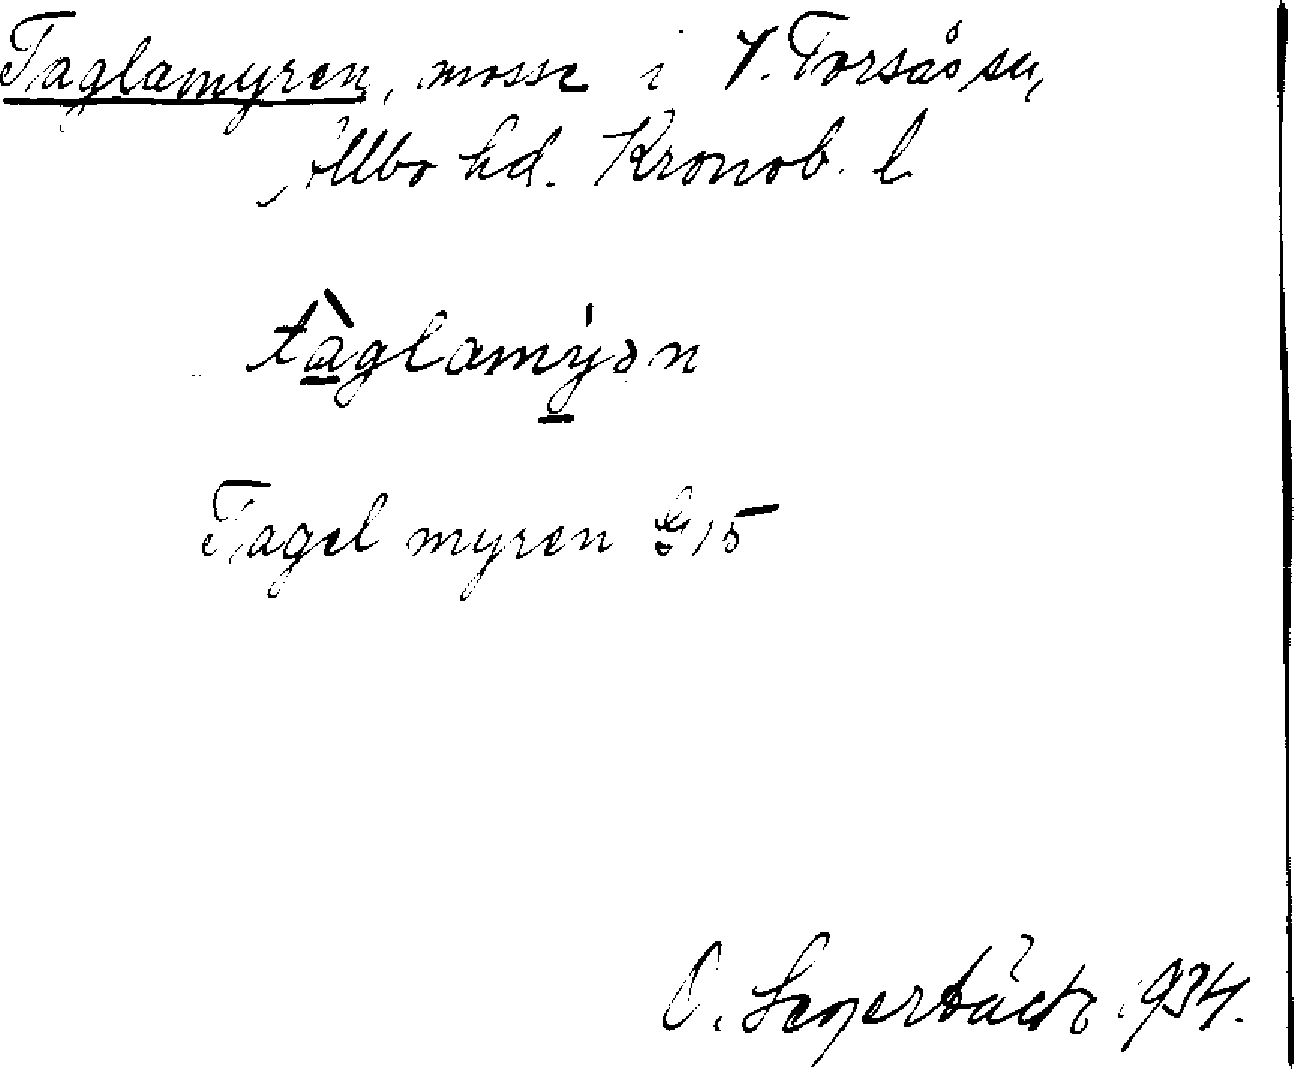 Taglamyren, mosse i V. Torsås sn,
Allbo hd. Kronob. l
tàglamýən
Tagel myren G 15
O. Segerbäck 1934.